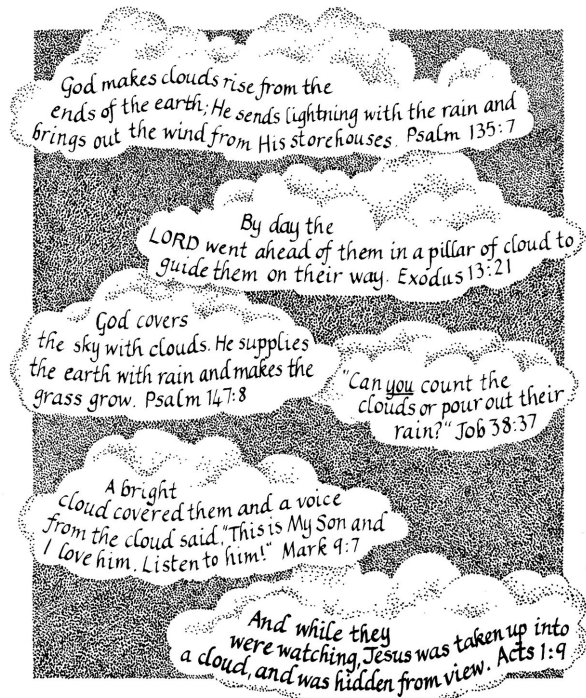 God makes clouds rise from the
ends of the earth; He sends lightning with the rain and
brings out the wind from His storehouses. Psalm 135:7
By day the
LORD went ahead of them in a pillar of cloud to
guide them on their way. Exodus 13:21
God covers
the sky with clouds. He supplies
the earth with rain and makes the
grass grow. Psalm 147:8
"Can you count the
clouds or pour out their
rain?" Job 38:37
A bright
cloud covered them and a voice
from the cloud said, "This is My Son and
I love him. Listen to him!" Mark 9:7
And while they
were watching, Jesus was taken up into
a cloud, and was hidden from view. Acts 1:9